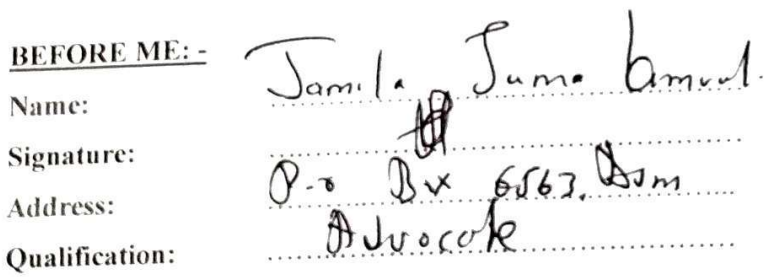 BEFORE ME: -
Name: Jamila Juma
Signature:
Address: P.o Box 6563, Dsm
Qualification: Advocate